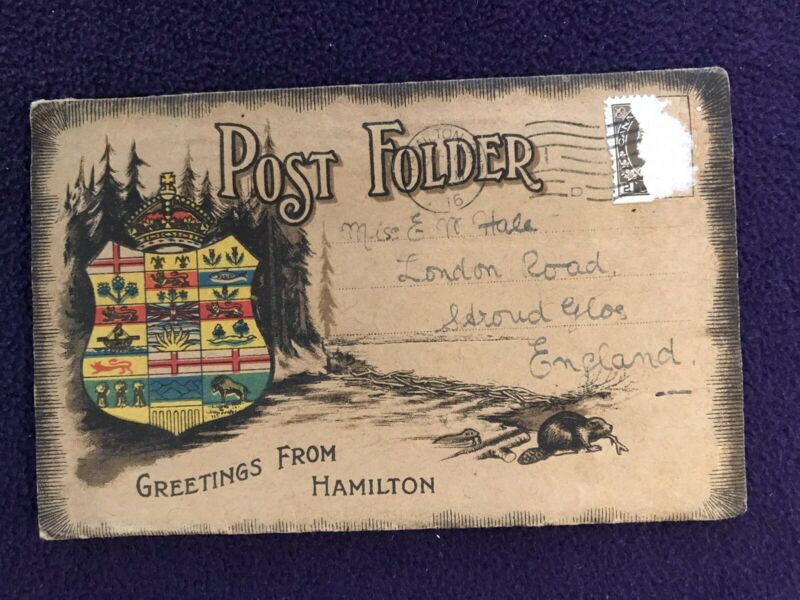 POST FOLDER
16
Miss E W Hale
London Road,
Stroud Glos
England.
GREETINGS FROM
HAMILTON